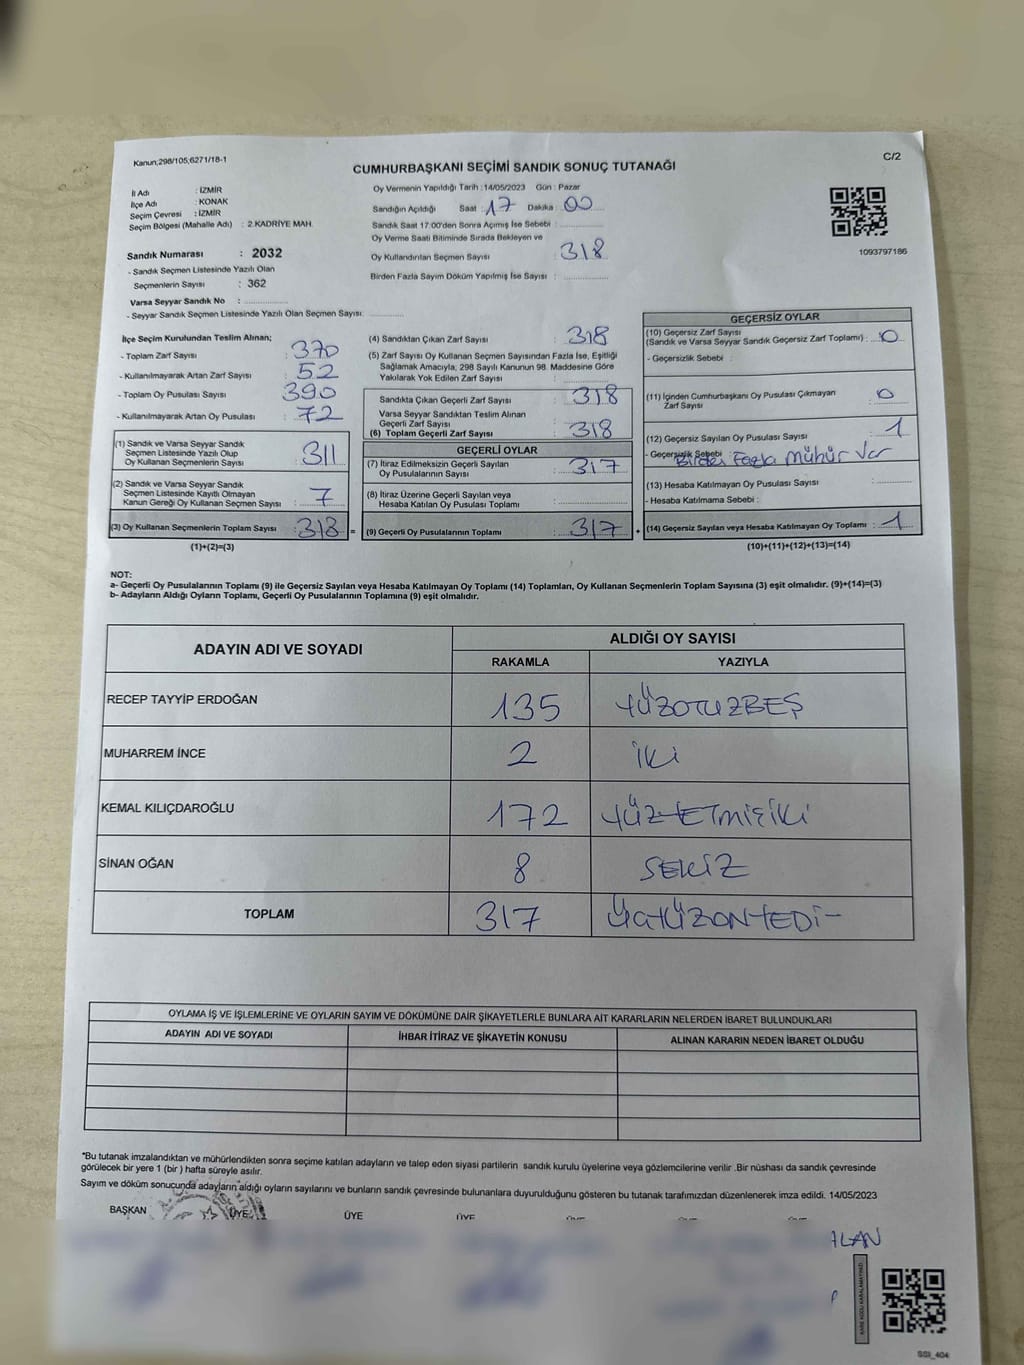 Kanun;298/105;6271/18-1
CUMHURBAŞKANI SEÇİMİ SANDIK SONUÇ TUTANAĞI
C/2
İl Adı : İZMİR
İlçe Adı : KONAK
Seçim Çevresi : İZMİR
Seçim Bölgesi (Mahalle Adı) : 2.KADRİYE MAH.
Sandık Numarası : 2032
- Sandık Seçmen Listesinde Yazılı Olan
Seçmenlerin Sayısı : 362
Varsa Seyyar Sandık No : ................
- Seyyar Sandık Seçmen Listesinde Yazılı Olan Seçmen Sayısı: ............
Oy Vermenin Yapıldığı Tarih :14/05/2023 Gün : Pazar
Sandığın Açıldığı Saat :17 Dakika :00
Sandık Saat 17:00'den Sonra Açımış İse Sebebi : ................
Oy Verme Saati Bitiminde Sırada Bekleyen ve
Oy Kullandırılan Seçmen Sayısı : 318
Birden Fazla Sayım Döküm Yapılmış İse Sayısı : ................
1093797186
İlçe Seçim Kurulundan Teslim Alınan;
- Toplam Zarf Sayısı : 370
- Kullanılmayarak Artan Zarf Sayısı : 52
- Toplam Oy Pusulası Sayısı : 390
- Kullanılmayarak Artan Oy Pusulası : 72
(1) Sandık ve Varsa Seyyar Sandık
Seçmen Listesinde Yazılı Olup
Oy Kullanan Seçmenlerin Sayısı : 311
(2) Sandık ve Varsa Seyyar Sandık
Seçmen Listesinde Kayıtlı Olmayan
Kanun Gereği Oy Kullanan Seçmen Sayısı : 7
(3) Oy Kullanan Seçmenlerin Toplam Sayısı : 318 =
(1)+(2)=(3)
(4) Sandıktan Çıkan Zarf Sayısı : 318
(5) Zarf Sayısı Oy Kullanan Seçmen Sayısından Fazla İse, Eşitliği
Sağlamak Amacıyla; 298 Sayılı Kanunun 98. Maddesine Göre
Yakılarak Yok Edilen Zarf Sayısı : ................
Sandıkta Çıkan Geçerli Zarf Sayısı : 318
Varsa Seyyar Sandıktan Teslim Alınan
Geçerli Zarf Sayısı : ................
(6) Toplam Geçerli Zarf Sayısı : 318
GEÇERLİ OYLAR
(7) İtiraz Edilmeksizin Geçerli Sayılan
Oy Pusulalarının Sayısı : 317
(8) İtiraz Üzerine Geçerli Sayılan veya
Hesaba Katılan Oy Pusulaları Toplamı : ................
(9) Geçerli Oy Pusulalarının Toplamı : 317 +
GEÇERSİZ OYLAR
(10) Geçersiz Zarf Sayısı
(Sandık ve Varsa Seyyar Sandık Geçersiz Zarf Toplamı) : 0
- Geçersizlik Sebebi :
(11) İçinden Cumhurbaşkanı Oy Pusulası Çıkmayan
Zarf Sayısı : 0
(12) Geçersiz Sayılan Oy Pusulası Sayısı : 1
- Geçersizlik Sebebi : Birden Fazla Mühür Var
(13) Hesaba Katılmayan Oy Pusulası Sayısı : ................
- Hesaba Katılmama Sebebi :
(14) Geçersiz Sayılan veya Hesaba Katılmayan Oy Toplamı : 1
(10)+(11)+(12)+(13)=(14)
NOT:
a- Geçerli Oy Pusulalarının Toplamı (9) ile Geçersiz Sayılan veya Hesaba Katılmayan Oy Toplamı (14) Toplamları, Oy Kullanan Seçmenlerin Toplam Sayısına (3) eşit olmalıdır. (9)+(14)=(3)
b- Adayların Aldığı Oyların Toplamı, Geçerli Oy Pusulalarının Toplamına (9) eşit olmalıdır.
ADAYIN ADI VE SOYADI
ALDIĞI OY SAYISI
RAKAMLA YAZIYLA
RECEP TAYYİP ERDOĞAN 135 YÜZOTUZBEŞ
MUHARREM İNCE 2 İKİ
KEMAL KILIÇDAROĞLU 172 YÜZYETMİŞİKİ
SİNAN OĞAN 8 SEKİZ
TOPLAM 317 ÜÇYÜZONYEDİ-
OYLAMA İŞ VE İŞLEMLERİNE VE OYLARIN SAYIM VE DÖKÜMÜNE DAİR ŞİKAYETLERLE BUNLARA AİT KARARLARIN NELERDEN İBARET BULUNDUKLARI
ADAYIN ADI VE SOYADI İHBAR İTİRAZ VE ŞİKAYETİN KONUSU ALINAN KARARIN NEDEN İBARET OLDUĞU
*Bu tutanak imzalandıktan ve mühürlendikten sonra seçime katılan adayların ve talep eden siyasi partilerin sandık kurulu üyelerine veya gözlemcilerine verilir .Bir nüshası da sandık çevresinde
görülecek bir yere 1 (bir ) hafta süreyle asılır.
Sayım ve döküm sonucunda adayların aldığı oyların sayılarını ve bunların sandık çevresinde bulunanlara duyurulduğunu gösteren bu tutanak tarafımızdan düzenlenerek imza edildi. 14/05/2023
BAŞKAN ÜYE ÜYE ÜYE
SSI_404